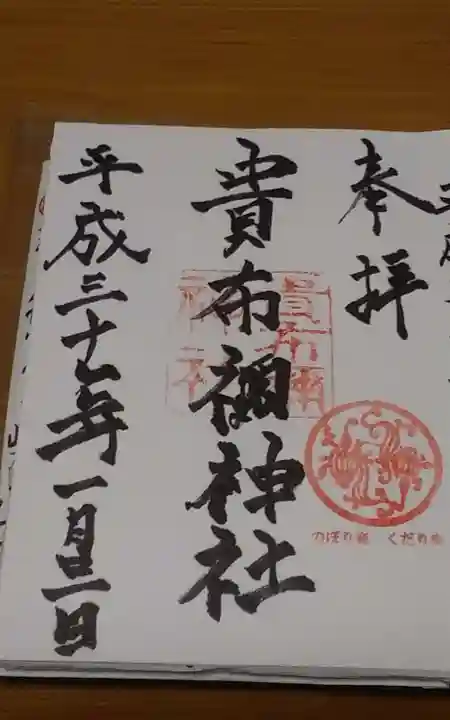 奉拝
のぼり龍 くだり龍
貴布禰神社
貴布禰
神社
平成三十一年一月三日